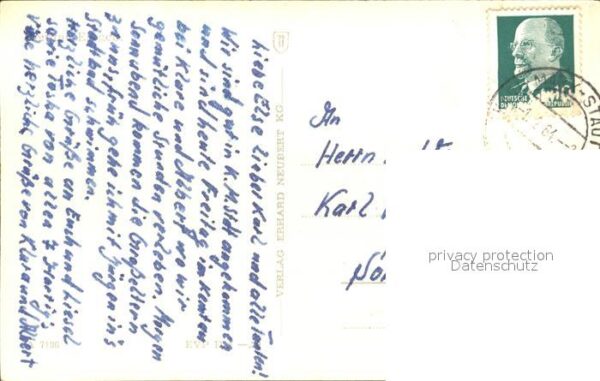 Liebe Else lieber Karl und alle Tanten!
Wir sind gut in K. M. Stadt angekommen
und sind heute Freitag im
bei Klara und Albert wo wir
gemütliche Stunden verleben. Morgen
Sonnabend kommen die Großeltern
zu uns, früh gehe ich mit Jürgen in's
Stadtbad schwimmen.
Herzliche Grüße an Euch und Liesel
sowie von allen
viele herzliche Grüße von Klara und Albert
VERLAG ERHARD NEUBERT KG
An
Herrn
Karl
privacy protection
Datenschutz
DEUTSCHE